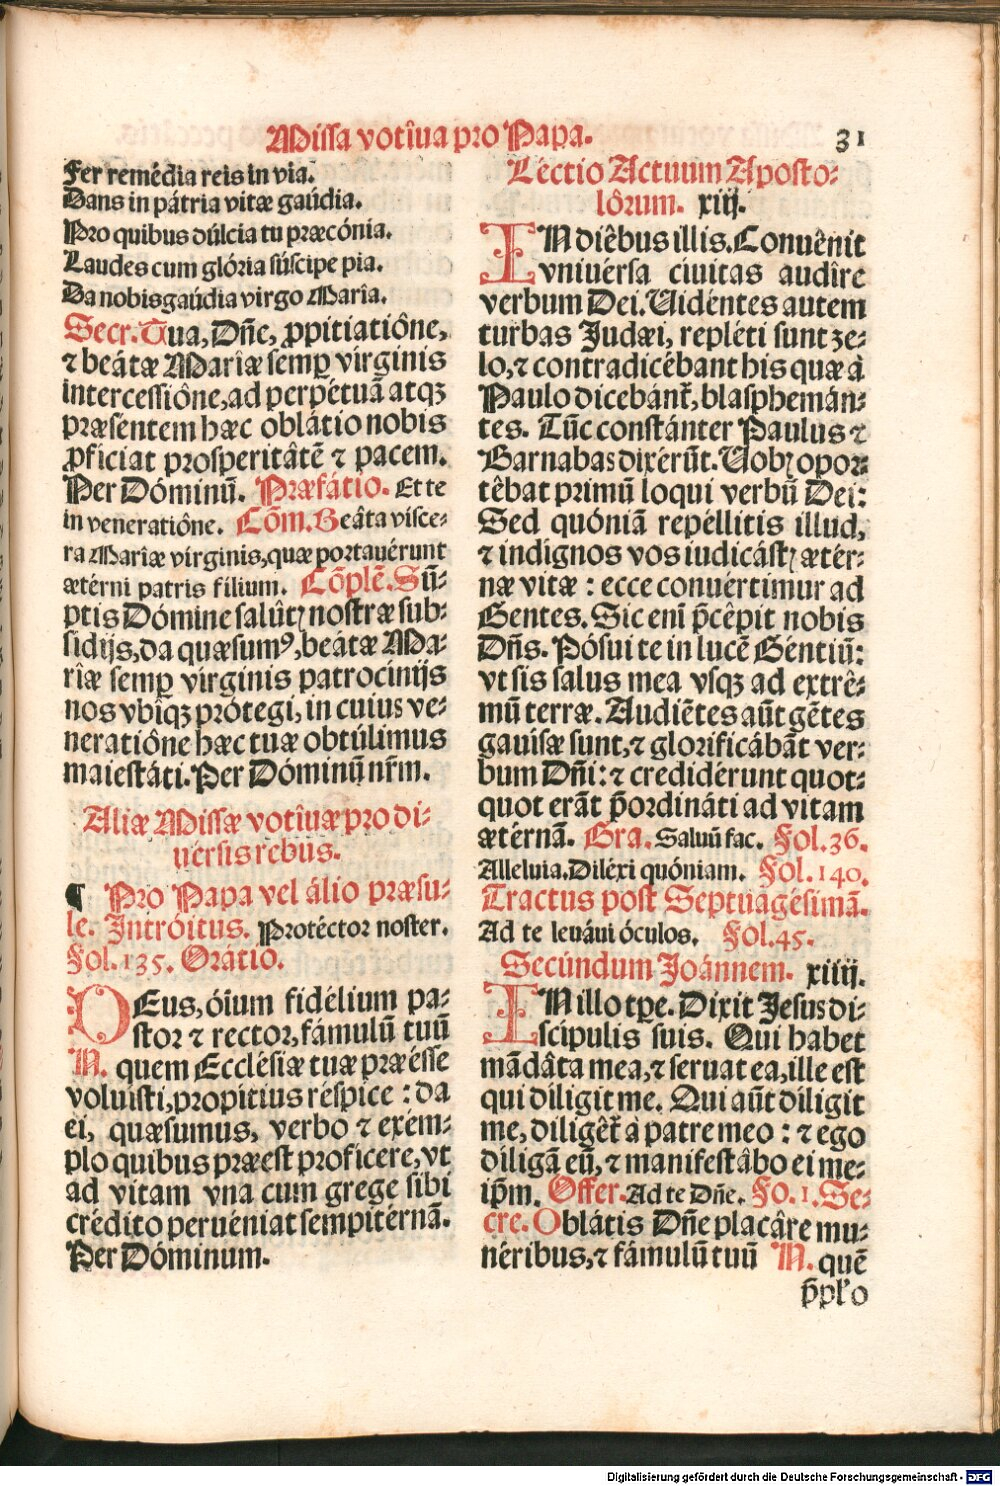 Missa votîua pro Papa. 31
Fer remédia reis in via.
Dans in pátria vitæ gaúdia.
Pro quibus dúlcia tu præcónia.
Laudes cum glória súscipe pia.
Da nobis gaúdia virgo Maria.
Secr. Tua, Dñe, ꝓpitiatiône,
⁊ beátæ Mariæ semꝑ virginis
intercessiône, ad perpétuã atqꝫ
præsentem hæc oblátio nobis
ꝓficiat prosperitâtẽ ⁊ pacem.
Per Dóminũ. Præfátio. Et te
in veneratiône. Cõm. Beâta visce-
ra Mariæ virginis, quæ portauérunt
ætérni patris filium. Cõplẽ. Sũ-
ptis Dómine salûtꝭ nostræ sub-
sidijs, da quæsumꝰ, beátæ Ma-
rîæ semꝑ virginis patrocinijs
nos vbîqꝫ prótegi, in cuius ve-
neratiône hæc tuæ obtúlimus
maiestáti. Per Dóminũ nr̃m.
Aliæ Missæ votîuæ pro di-
uersis rebus.
¶ Pro Papa vel álio præsu-
le. Intróitus. Protéctor noster.
Fol. 135. Orátio.
DEus, óĩum fidélium pa-
stor ⁊ rector, fámulũ tuũ
N. quem Ecclésiæ tuæ præésse
voluisti, propitius réspice : da
ei, quæsumus, verbo ⁊ exém-
plo quibus præest proficere, vt
ad vitam vna cum grege sibi
crédito peruéniat sempiternã.
Per Dóminum.
Léctio Actuum Aposto-
lôrum. xiij.
IN diêbus illis. Conuênit
vniuérsa ciuitas audîre
verbum Dei. Uidéntes autem
turbas Judæi, repléti sunt ze-
lo, ⁊ contradicébant his quæ à
Paulo dicebánt᷒, blasphemán-
tes. Tũc constánter Paulus ⁊
Barnabas dixérũt. Uobꝭ opor-
têbat primũ loqui verbũ Dei:
Sed quóniã repéllitis illud,
⁊ indignos vos iudicástꝭ ætér-
næ vitæ : ecce conuértimur ad
Gentes. Sic enĩ p̃cêpit nobis
Dñs. Pósui te in lucẽ Géntiũ:
vt sis salus mea vsqꝫ ad extrê-
mũ terræ. Audiẽtes aũt gẽtes
gauisæ sunt, ⁊ glorificábãt ver-
bum Dñi: ⁊ credidérunt quot-
quot erãt p̃ordináti ad vitam
ætérnã. Gra. Saluũ fac. Fol. 36.
Alleluia. Diléxi quóniam. Fol. 140.
Tractus post Septuagésimã.
Ad te leuáui óculos. Fol. 45.
Secúndum Joánnem. xiiij.
IN illo tp̃e. Dixit Jesus di-
scipulis suis. Qui habet
mãdâta mea, ⁊ seruat ea, ille est
qui diligit me. Qui aũt diligit
me, diligẽt᷒ à patre meo : ⁊ ego
diligã eũ, ⁊ manifestâbo ei me-
ip̃m. Offer. Ad te Dñe. Fo. 1. Se-
cre. Oblátis Dñe placâre mu-
néribus, ⁊ fámulũ tuũ N. quẽ
p̃pl'o
Digitalisierung gefördert durch die Deutsche Forschungsgemeinschaft - DFG